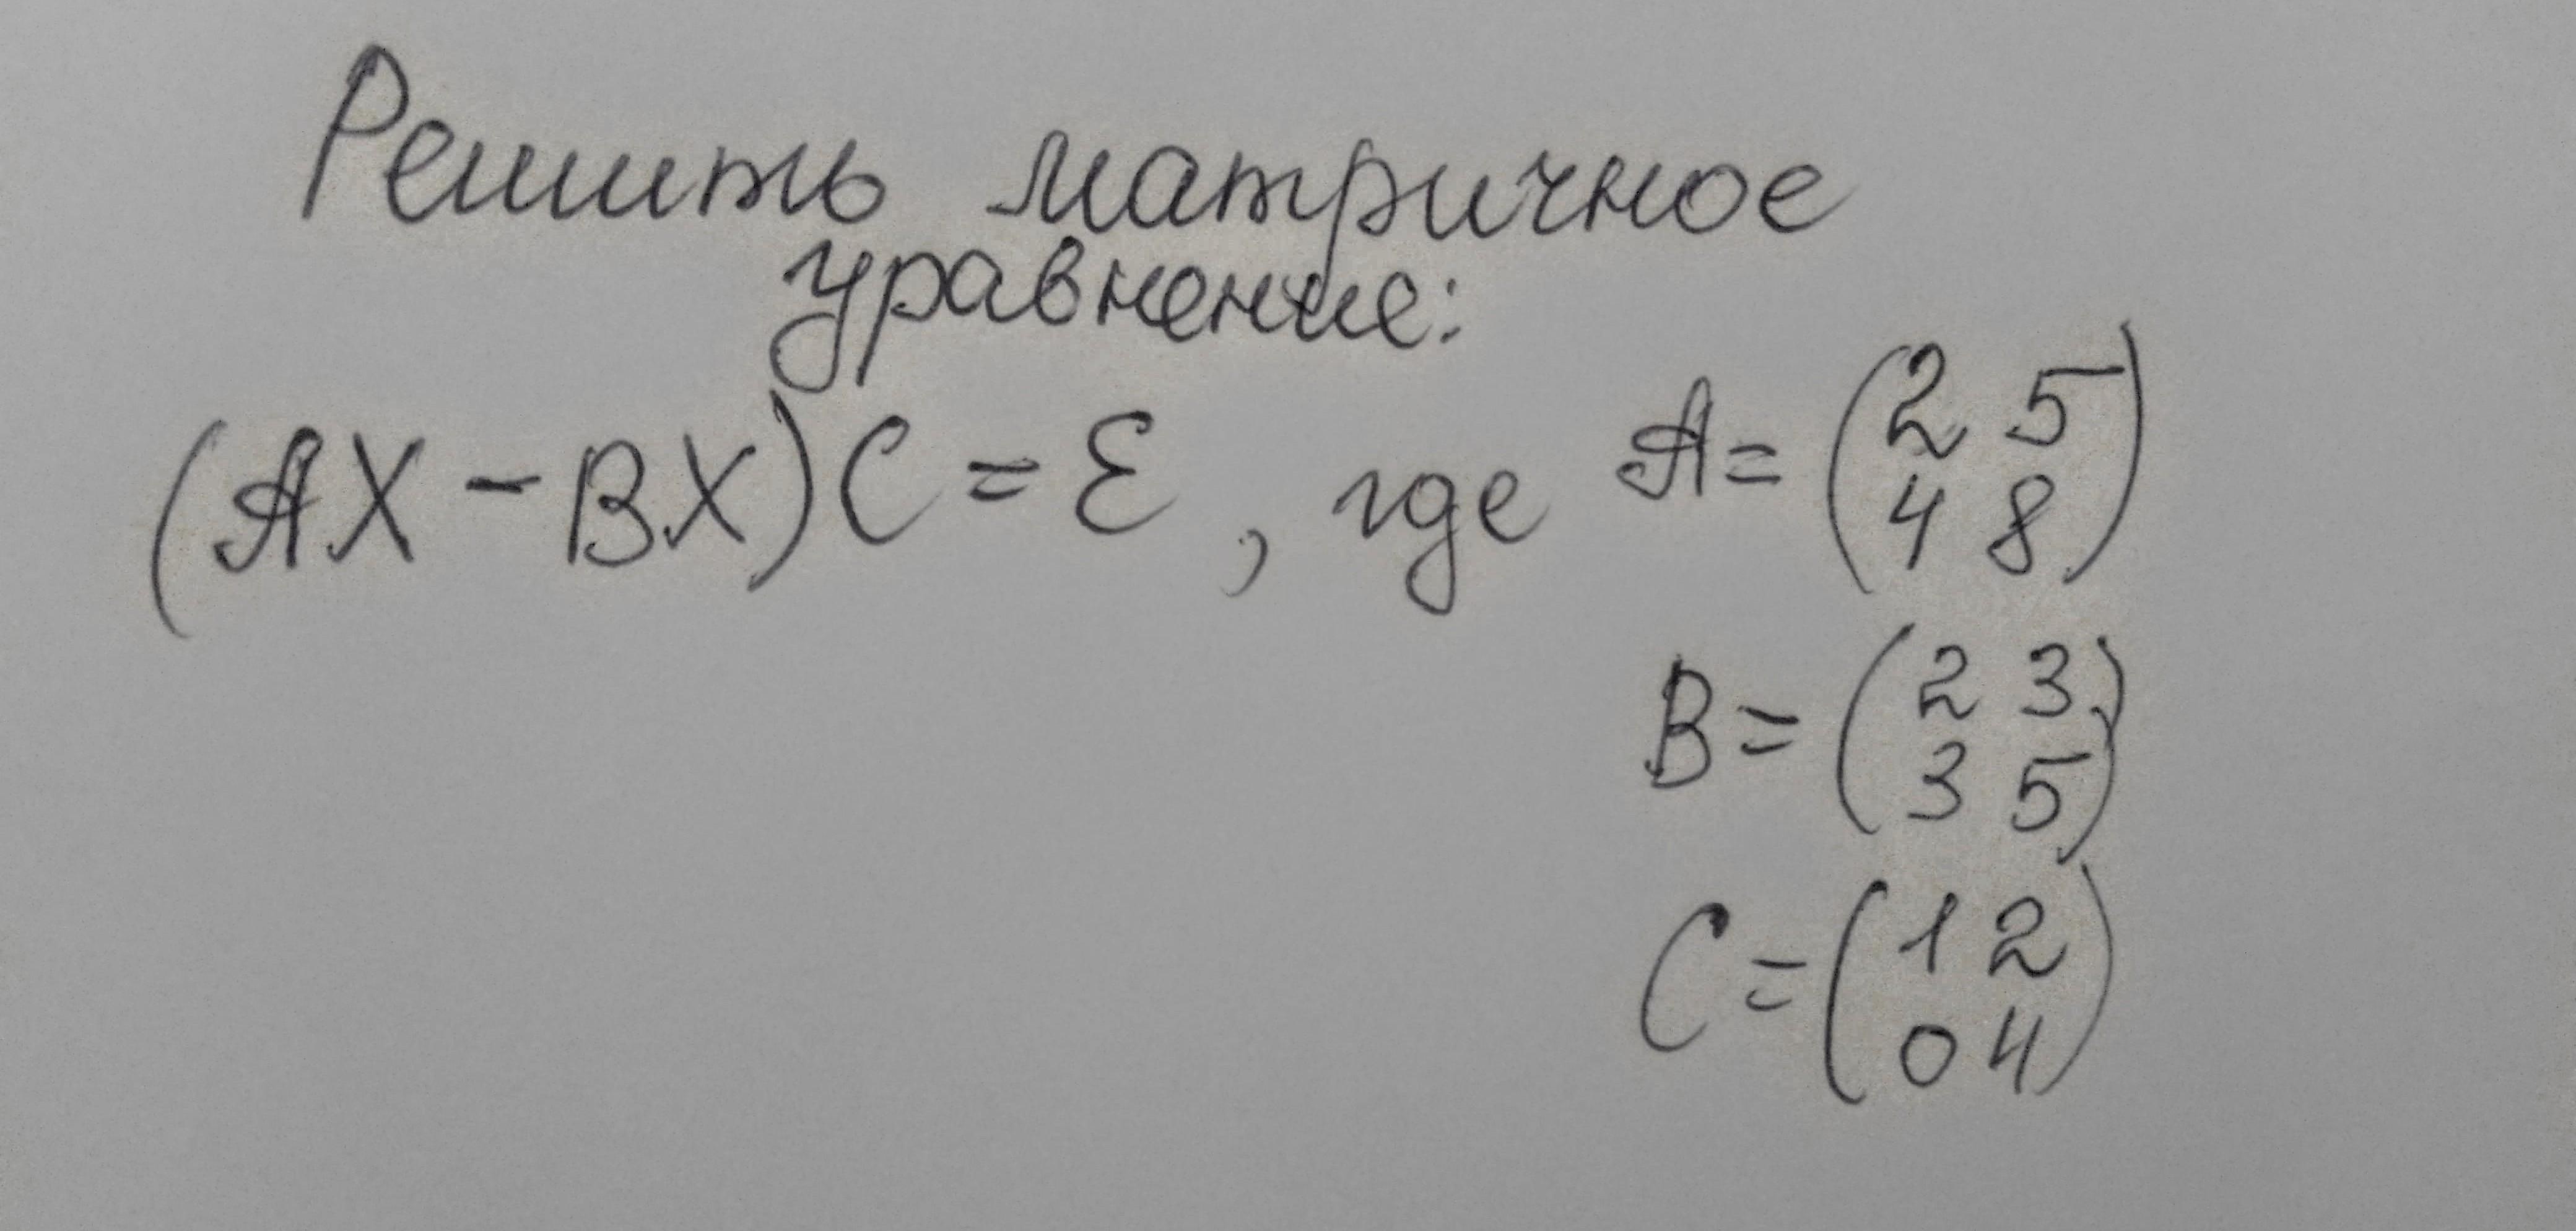 Решить матричное
уравнение:
(AX - BX)C = E, где A = (2 5
4 8)
B = (2 3
3 5)
C = (1 2
0 4)